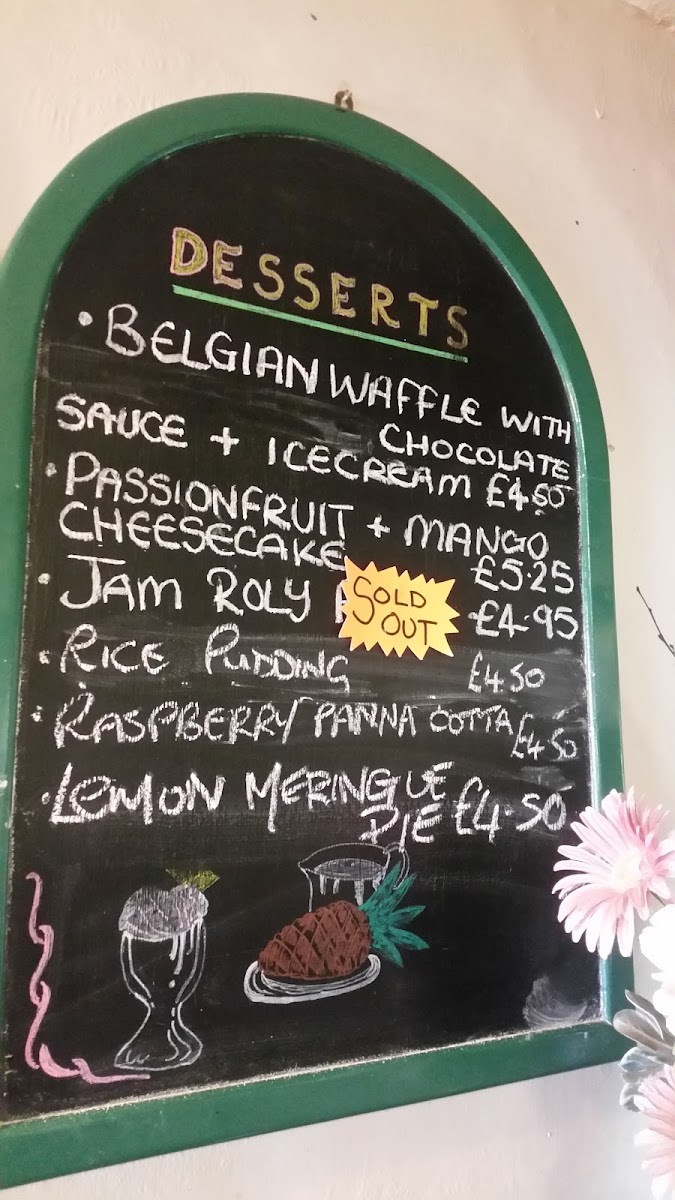 DESSERTS
• BELGIAN WAFFLE WITH
CHOCOLATE
SAUCE + ICECREAM £4.50
• PASSIONFRUIT + MANGO
CHEESECAKE £5.25
• JAM ROLY £4.95
SOLD
OUT
• RICE PUDDING £4.50
• RASPBERRY PANNA COTTA £4.50
• LEMON MERINGUE
PIE £4.50